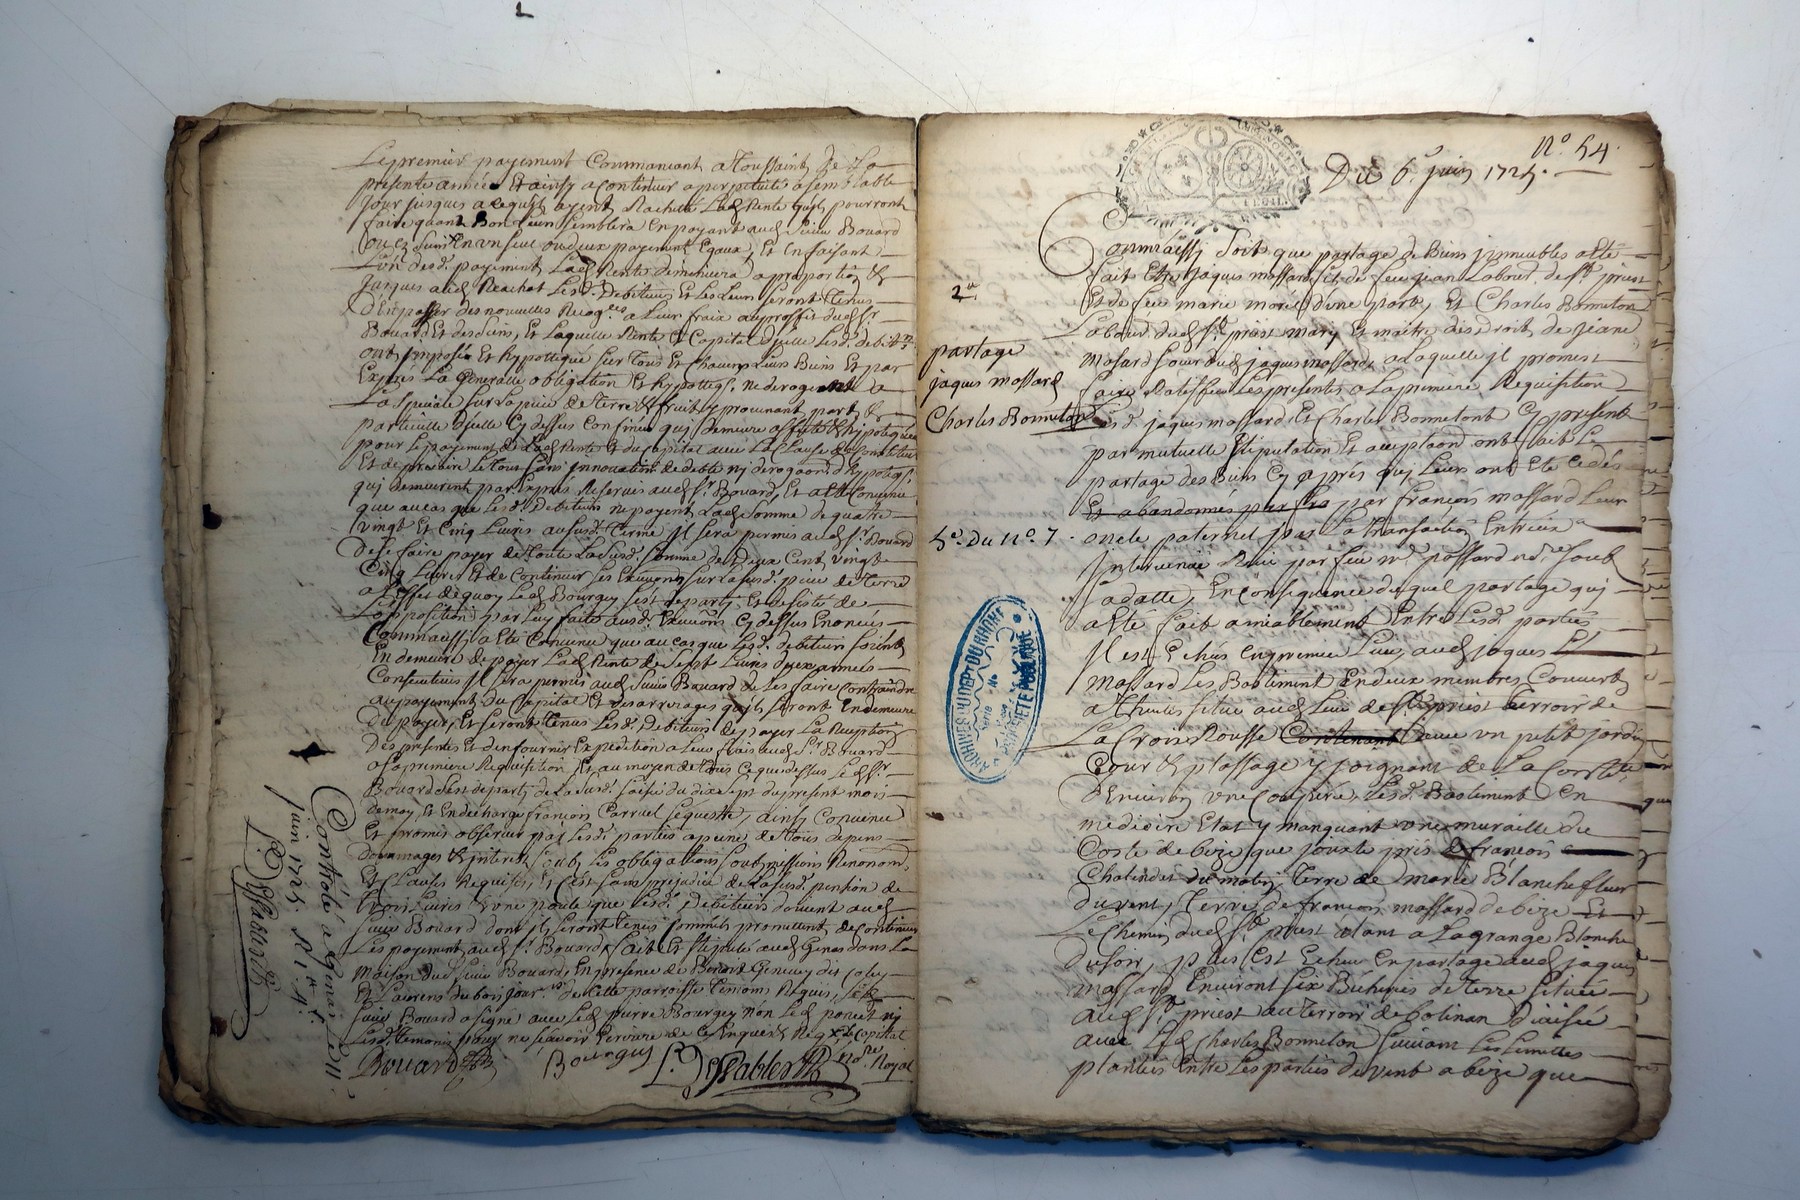 Le premier payement Commancant a toussaint de La
presente année Et ainsy a continuer a perpetuité a semblable
Jour jusques a ce quils ayent Rachetté Lad Rente quils pourront
faire quant Bon Leur semblera en payant aud sieur Bouard
ou ez siens en un seul ou deux payement Egaux, Et En faisant
L'un desd. payement Lad Rente diminuera a proportion &
jusques aud Reachat Lesd. Debiteurs Et Les Leurs seront tenus
d'En passer des nouvelles Recog.ces a Leur fraix au proffit dud Sr
Bouard Et des siens, Et Laquelle Rente Et Capital d'jcelle Lesd. debit.rs
ont jmposés Et hypotteque sur tous Et chacuns Leurs Biens Et par
Exprés La generalle obligation Et hypotteq. ne derogeant a
La speciale sur La piece de terre & fruits y provenant part &
particuille d'jcelle Cy dessus Confinée qui demeure affectée & hypotequée
pour Le payement de Lad Rente Et du Capital avec La Clause de Constitut
Et de precaire Le tout sans jnnovation de debte ny derogaon d'hypoteq.
qui demeurent par Exprés Reservés aud Sr. Bouard, Et a Esté Convenu
que au cas que Lesd. Debiteurs ne payent Lad Somme de quatre
vingt Et Cinq Livres au susd. terme jl sera permis aud Sr. Bouard
de se faire payer de toute La susd. somme de Deux Cent vingt
Cinq Livres Et de Continuer ses Execuons sur La susd. piece de terre
a L'effet de quoy Led Bourgey s'est departy Et desisté de
L'opposition par Luy faite ausd. Execuons Cy dessus Enoncés
Comme aussi a Esté Convenu que au cas que Lesd. debiteurs soient
En demeure de payer Lad Rente de sept Livres dix années
Consecutives jl sera permis aud sieur Bouard de Les faire Contraindre
au payement du Capital Et des arrerages quils seront En demeure
de payer, Et seront tenus Lesd. Debiteurs de payer La Reception
des presentes Et d'en fournir Expedition a Leur frais aud Sr. Bouard
a sa premiere Requisition Et au moyen de tous Ce que dessus Led Sr
Bouard s'est departy de La susd. saisie du dix sept du present mois
de may, Et En decharge françois Carruel sequestre, ainsy Convenu
Et promis observer par Lesd. parties a peine de tous depens
dommages & jnterest sous Les obligations soubmissions Renonons
Et Clauses Requises, Et C'est sans prejudice de La susd. pention de
trois Livres & une poule que Lesd. Debiteurs doivent aud
sieur Bouard dont jls seront tenus Comme jls promettent de continuer
Les payement aud Sr. Bouard, fait Et stipulé aud Genas dans La
maison dud sieur Bouard, En presence de Benoit Genevey dit
Et Laurens du bois Jour.rs de Cette parroisse temoins Requis, Led
sieur Bouard a signé avec Led pierre Bourgey non Led poncet ny
Lesd. temoins pour ne sçavoir Escrire de Ce Enquis & Req.
Bouard
Bourgey
No.re Royal
Controlé a Genas Le 11.
juin 1725. R.
N.o 54.
Du 6.e juin 1725.
Comme aussi Soit que partage de Biens jmmeubles a Esté
fait Entre Jaques massard fils de feu jean Labour. de St. priest
Et de feue marie morel d'une part, Et Charles Bonneton
Labour dud St. priest mary Et maitre des droits de jeane
Massard soeur dud jaques massard, a Laquelle jl promest
faire Ratiffier Les presentes a La premiere Requisition
Lesd. jaques massard, Et Charles Bonnetont Cy present
par mutuelle stipulation Et acceptaon ont fait Le
partage des Biens Cy aprés qui Leurs ont Eté cedés
Et abandonnés par par françois massard Leur
oncle paternel par La transaction Entreux
jntervenue Receue par feu me. passard no.re soub
sa datte, En consequence duquel partage qui
a Esté fait amiablement Entre Lesd. parties
jl est Echus En premier Lieu aud jaques
Massard Les Bastiment En deux membres Couverts
a thuiles situé aud Lieu de St. priest terroir de
La Croix Rousse Contenant avec un petit jardin
Cour & plassage y joignant de La Contenue
d'Environ une Coupée, Lesd. Bastiment En
mediocre Etat y manquant une muraille du
Costé de bize que jouxte prés de françois
Chalendet du matin, terre de marie Blanchefleur
du vent, terre de françois massard de bize Et
Le chemin dud St. priest alant a La grange Blanche
du soir, plus Est Echeu En partage aud jaques
massard Environt six Bicherées de terre située
aud St. priest au terroir de bolinan divisée
avec Led Charles Bonneton suivant Les Limittes
plantées Entre Les parties de vent a bize que
2.e
partage
jaques massard
Charles Bonneton
5.e Du N.o 7.
ARCHIVES DU DEPT DU RHONE
PROPRIETE PUBLIQUE